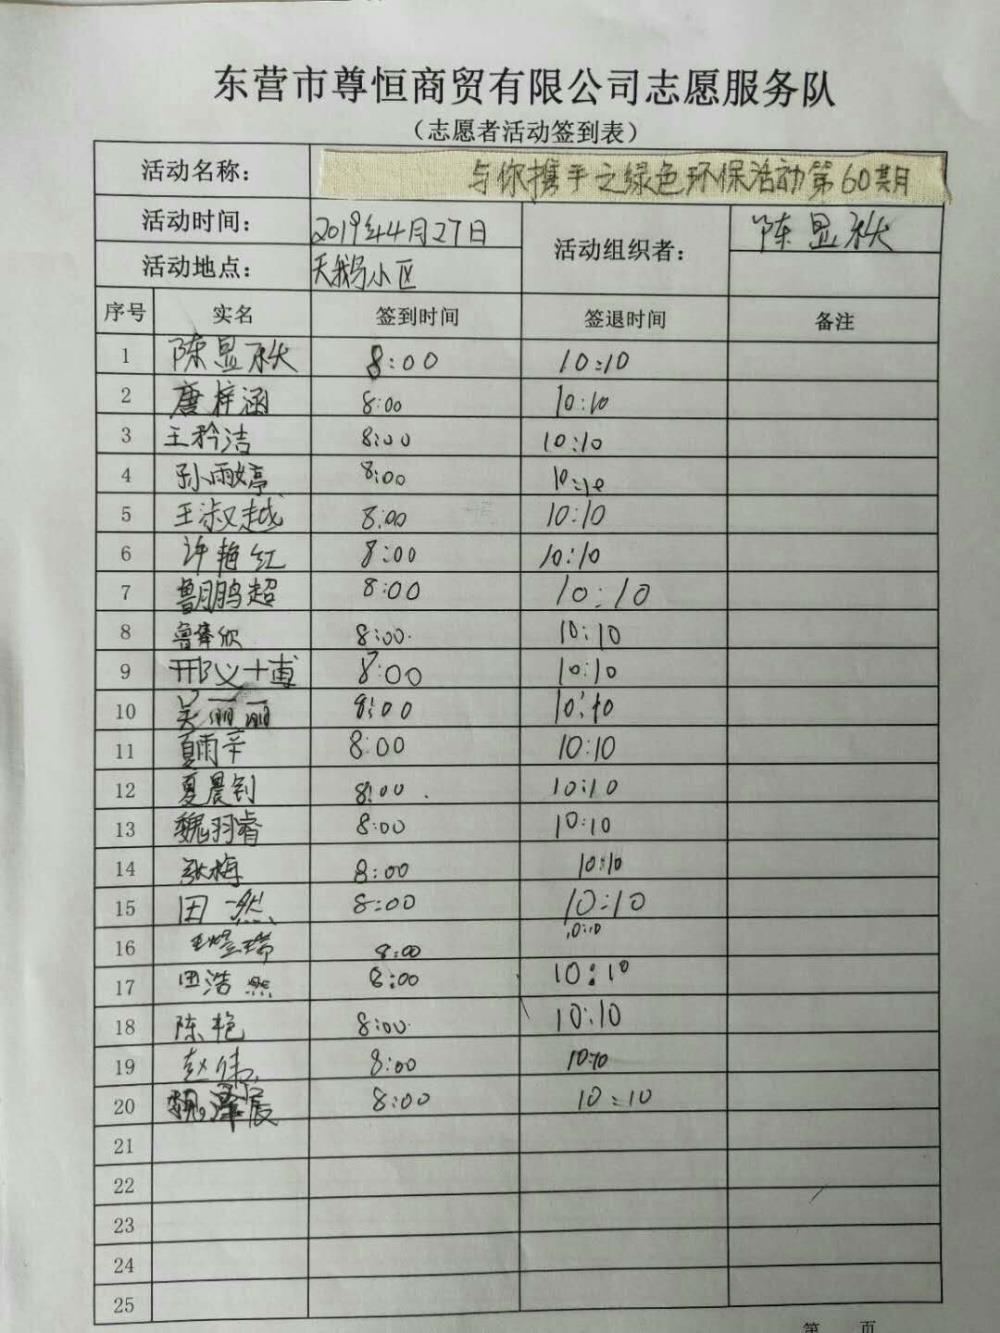 东营市尊恒商贸有限公司志愿服务队
（志愿者活动签到表）
活动名称： 与你携手之绿色环保活动第60期
活动时间： 2019年4月27日 活动组织者： 陈显秋
活动地点： 天鹅小区
序号 实名 签到时间 签退时间 备注
1 陈显秋 8:00 10:10
2 唐梓涵 8:00 10:10
3 王矜洁 8:00 10:10
4 孙雨婷 8:00 10:10
5 王淑越 8:00 10:10
6 许艳红 8:00 10:10
7 鲁鹏超 8:00 10:10
8 鲁 欣 8:00 10:10
9 邢义博 8:00 10:10
10 吴丽丽 8:00 10:10
11 夏雨辛 8:00 10:10
12 夏晨钊 8:00 10:10
13 魏羽睿 8:00 10:10
14 张梅 8:00 10:10
15 田一然 8:00 10:10
16 王煜瑞 8:00 10:10
17 田浩然 8:00 10:10
18 陈艳 8:00 10:10
19 赵伟 8:00 10:10
20 魏泽宸 8:00 10:10
21
22
23
24
25
第 页